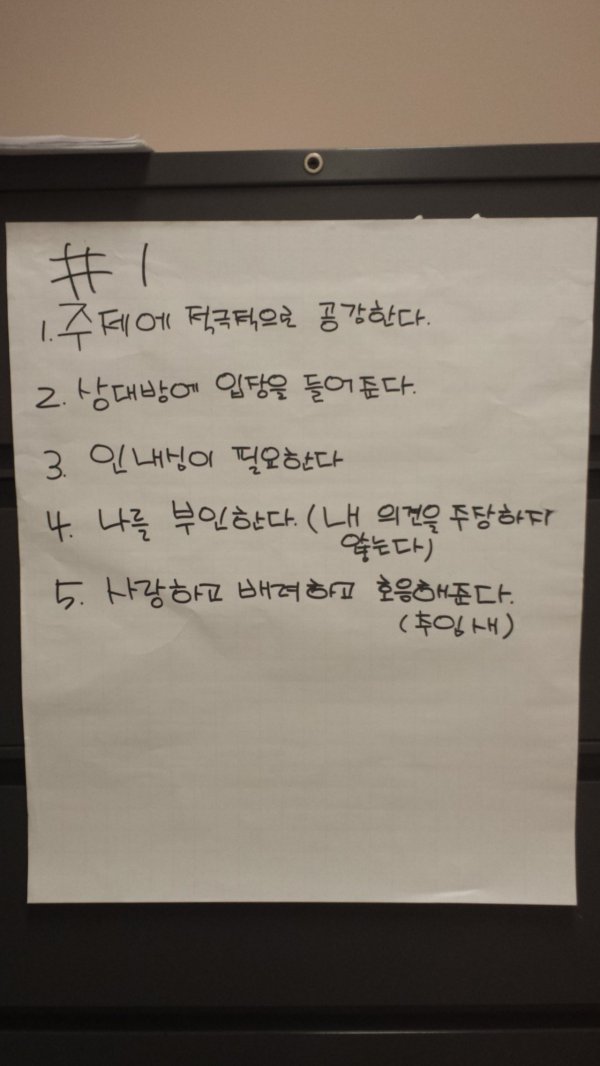 #1
1. 주제에 적극적으로 공감한다.
2. 상대방에 입장을 들어준다.
3. 인내심이 필요한다
4. 나를 부인한다. (내 의견을 주장하지
않는다)
5. 사랑하고 배려하고 호응해준다.
(추임새)